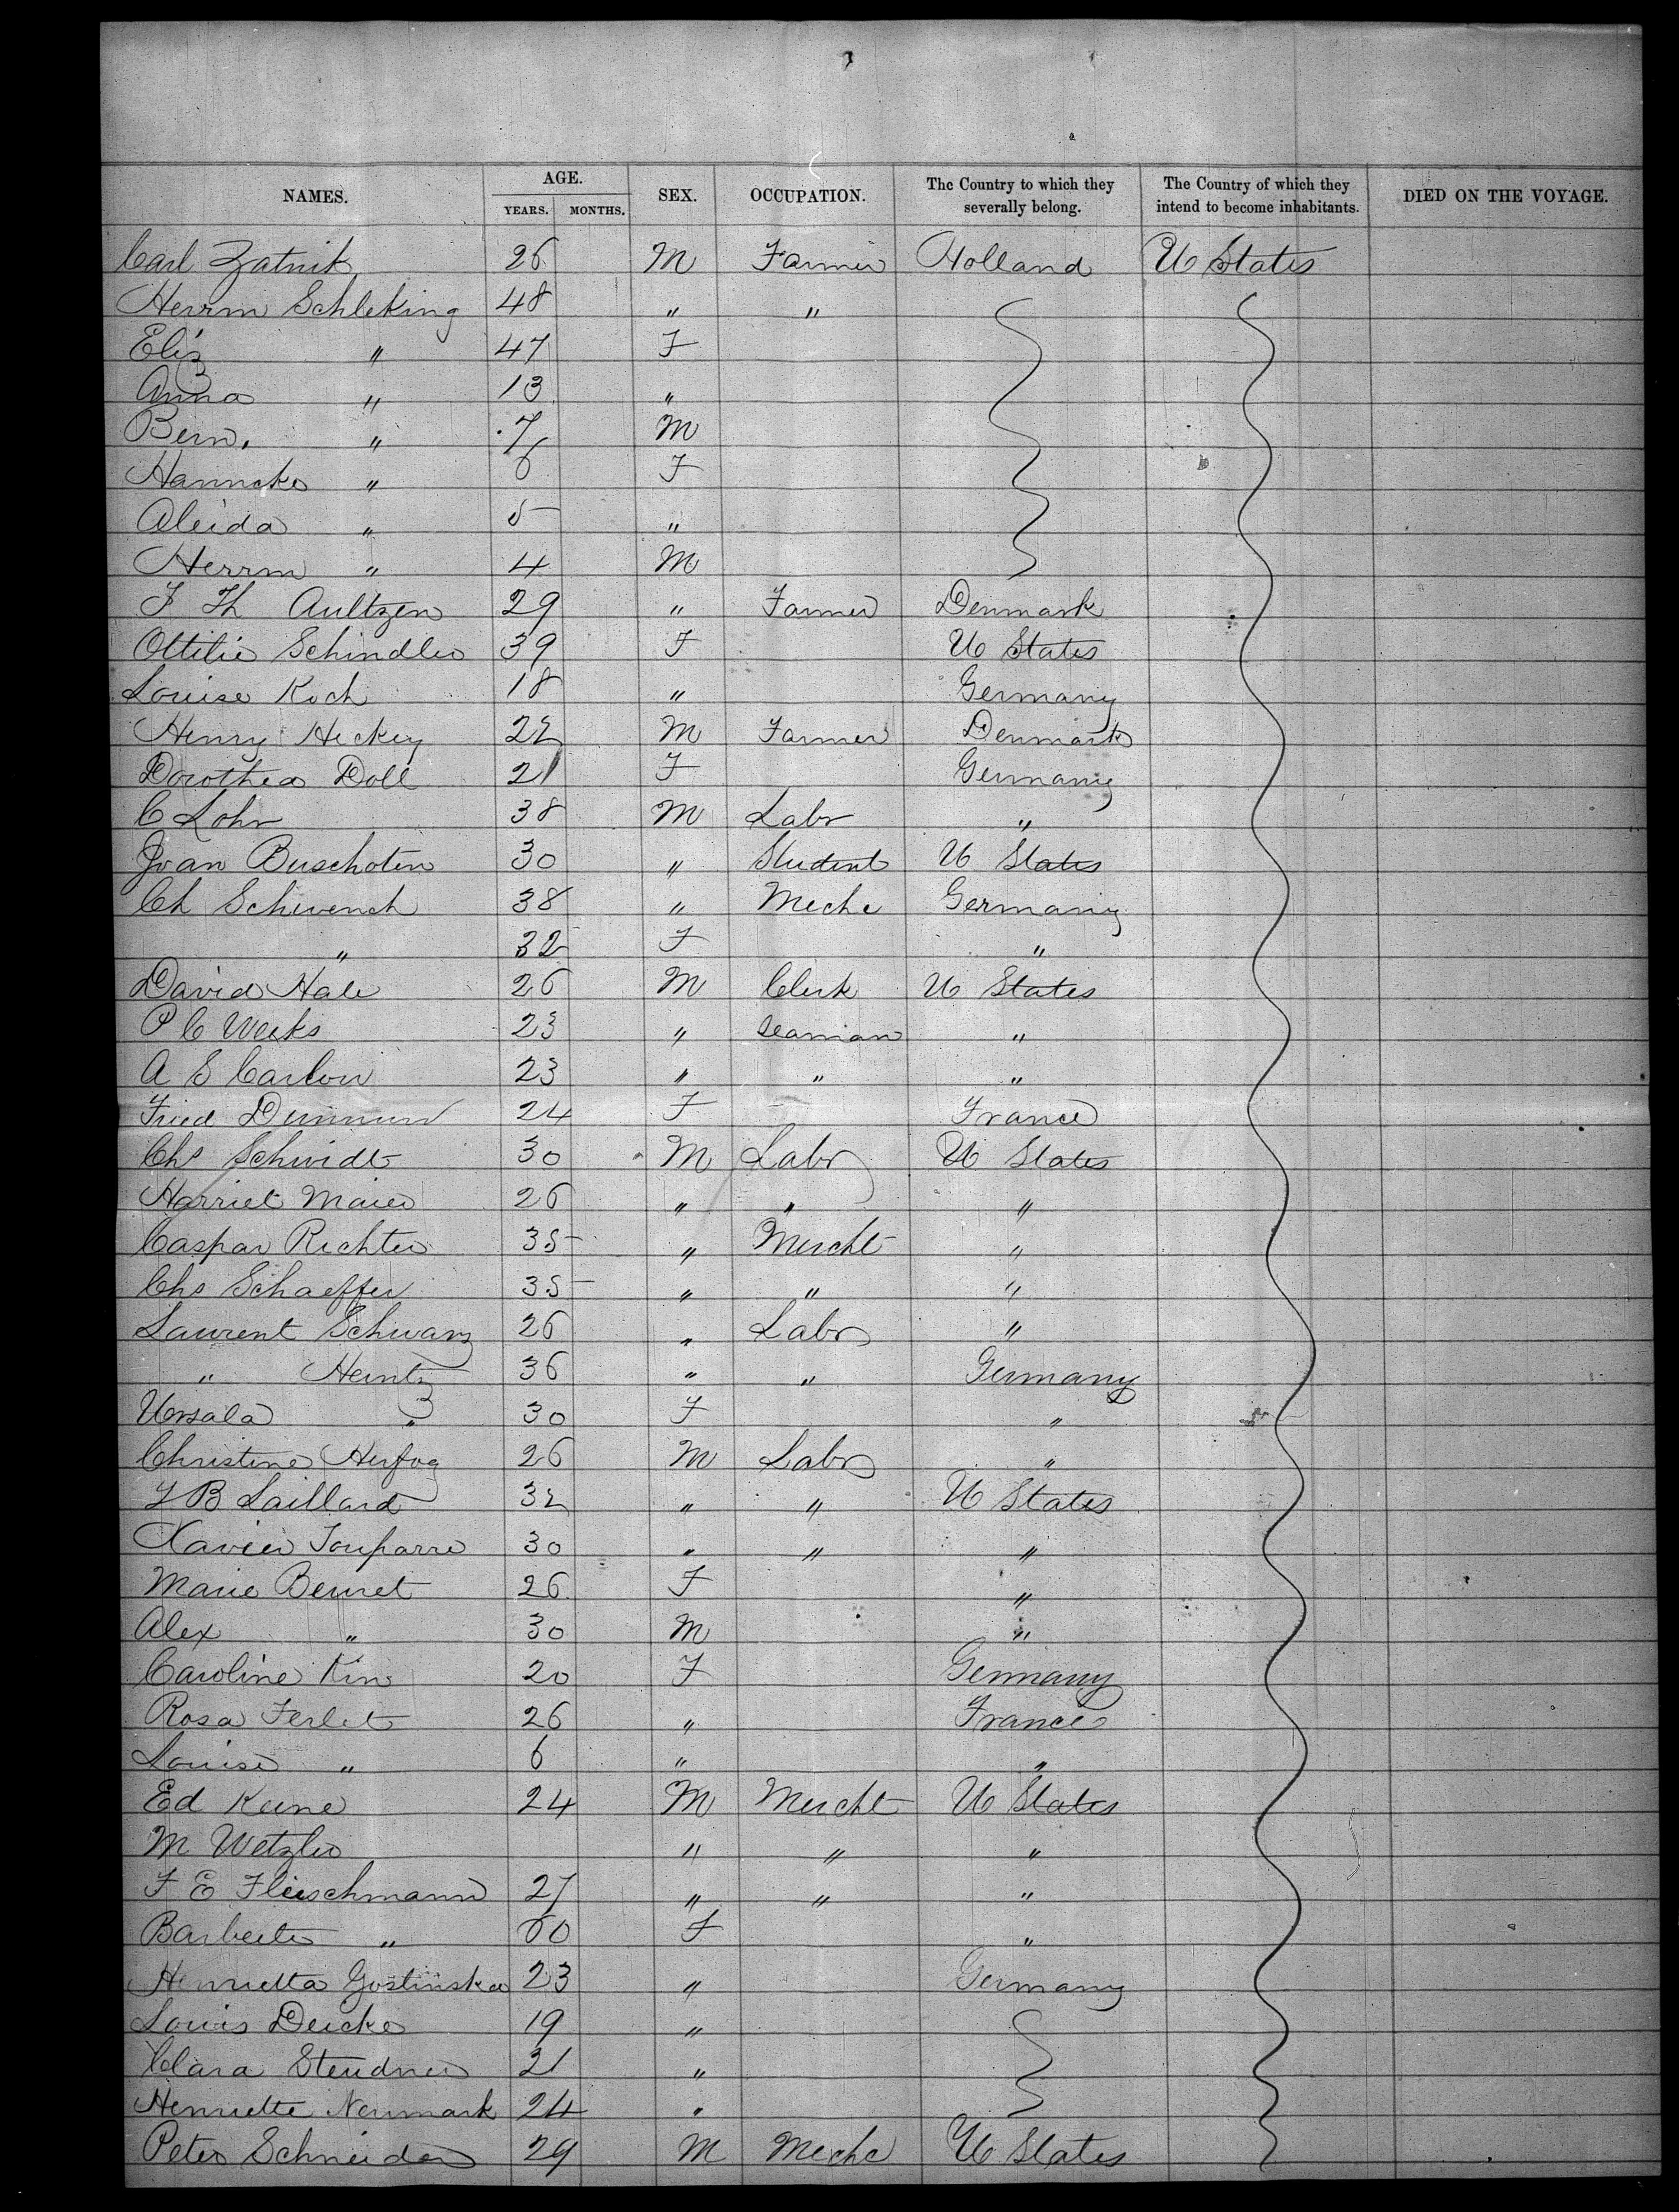 NAMES. AGE. YEARS. MONTHS. SEX. OCCUPATION. The Country to which they severally belong. The Country of which they intend to become inhabitants. DIED ON THE VOYAGE.
Carl Zatnik 26 M Farmer Holland U States
Herrm Schleking 48 " "
Eliz " 47 F
Anna " 13 "
Bern. " 7 M
Hanncke " 6 F
Aleida " 5 "
Herrm " 4 M
F Th Aultzen 29 " Farmer Denmark
Ottilie Schindler 39 F U States
Louise Koch 18 " Germany
Henry Heckey 22 M Farmer Denmark
Dorothea Doll 21 F Germany
C Lohr 38 M Labr "
Joan Buschoten 30 " Student U States
Ch Schwench 38 " Mechc Germany
" 32 F "
David Hale 26 M Clerk U States
P C Weeks 23 " Seaman "
A S Carlow 23 " " "
Fried 24 F France
Chs Schmidt 30 M Labr U States
Harriet Maier 26 " " "
Caspar Richter 35 " Mercht "
Chs Schaeffer 35 " " "
Laurent Schwarz 26 " Labr "
" Heintz 36 " " Germany
Ursala " 30 F "
Christine Herzog 26 M Labr "
L B Laillard 32 " " U States
Xavier 30 " " "
Marie Beuret 26 F "
Alex " 30 M "
Caroline Kins 20 F Germany
Rosa Ferlet 26 " France
Louise " 6 " "
Ed Keene 24 M Mercht U States
M Wetzler " " "
F E Fleischmann 27 " " "
Barbeete " 60 F "
Henrietta Goslinska 23 " Germany
Louis Deicke 19 "
Clara Steudner 21 "
Henriette Neumark 24 "
Peter Schneider 29 M Mechc U States